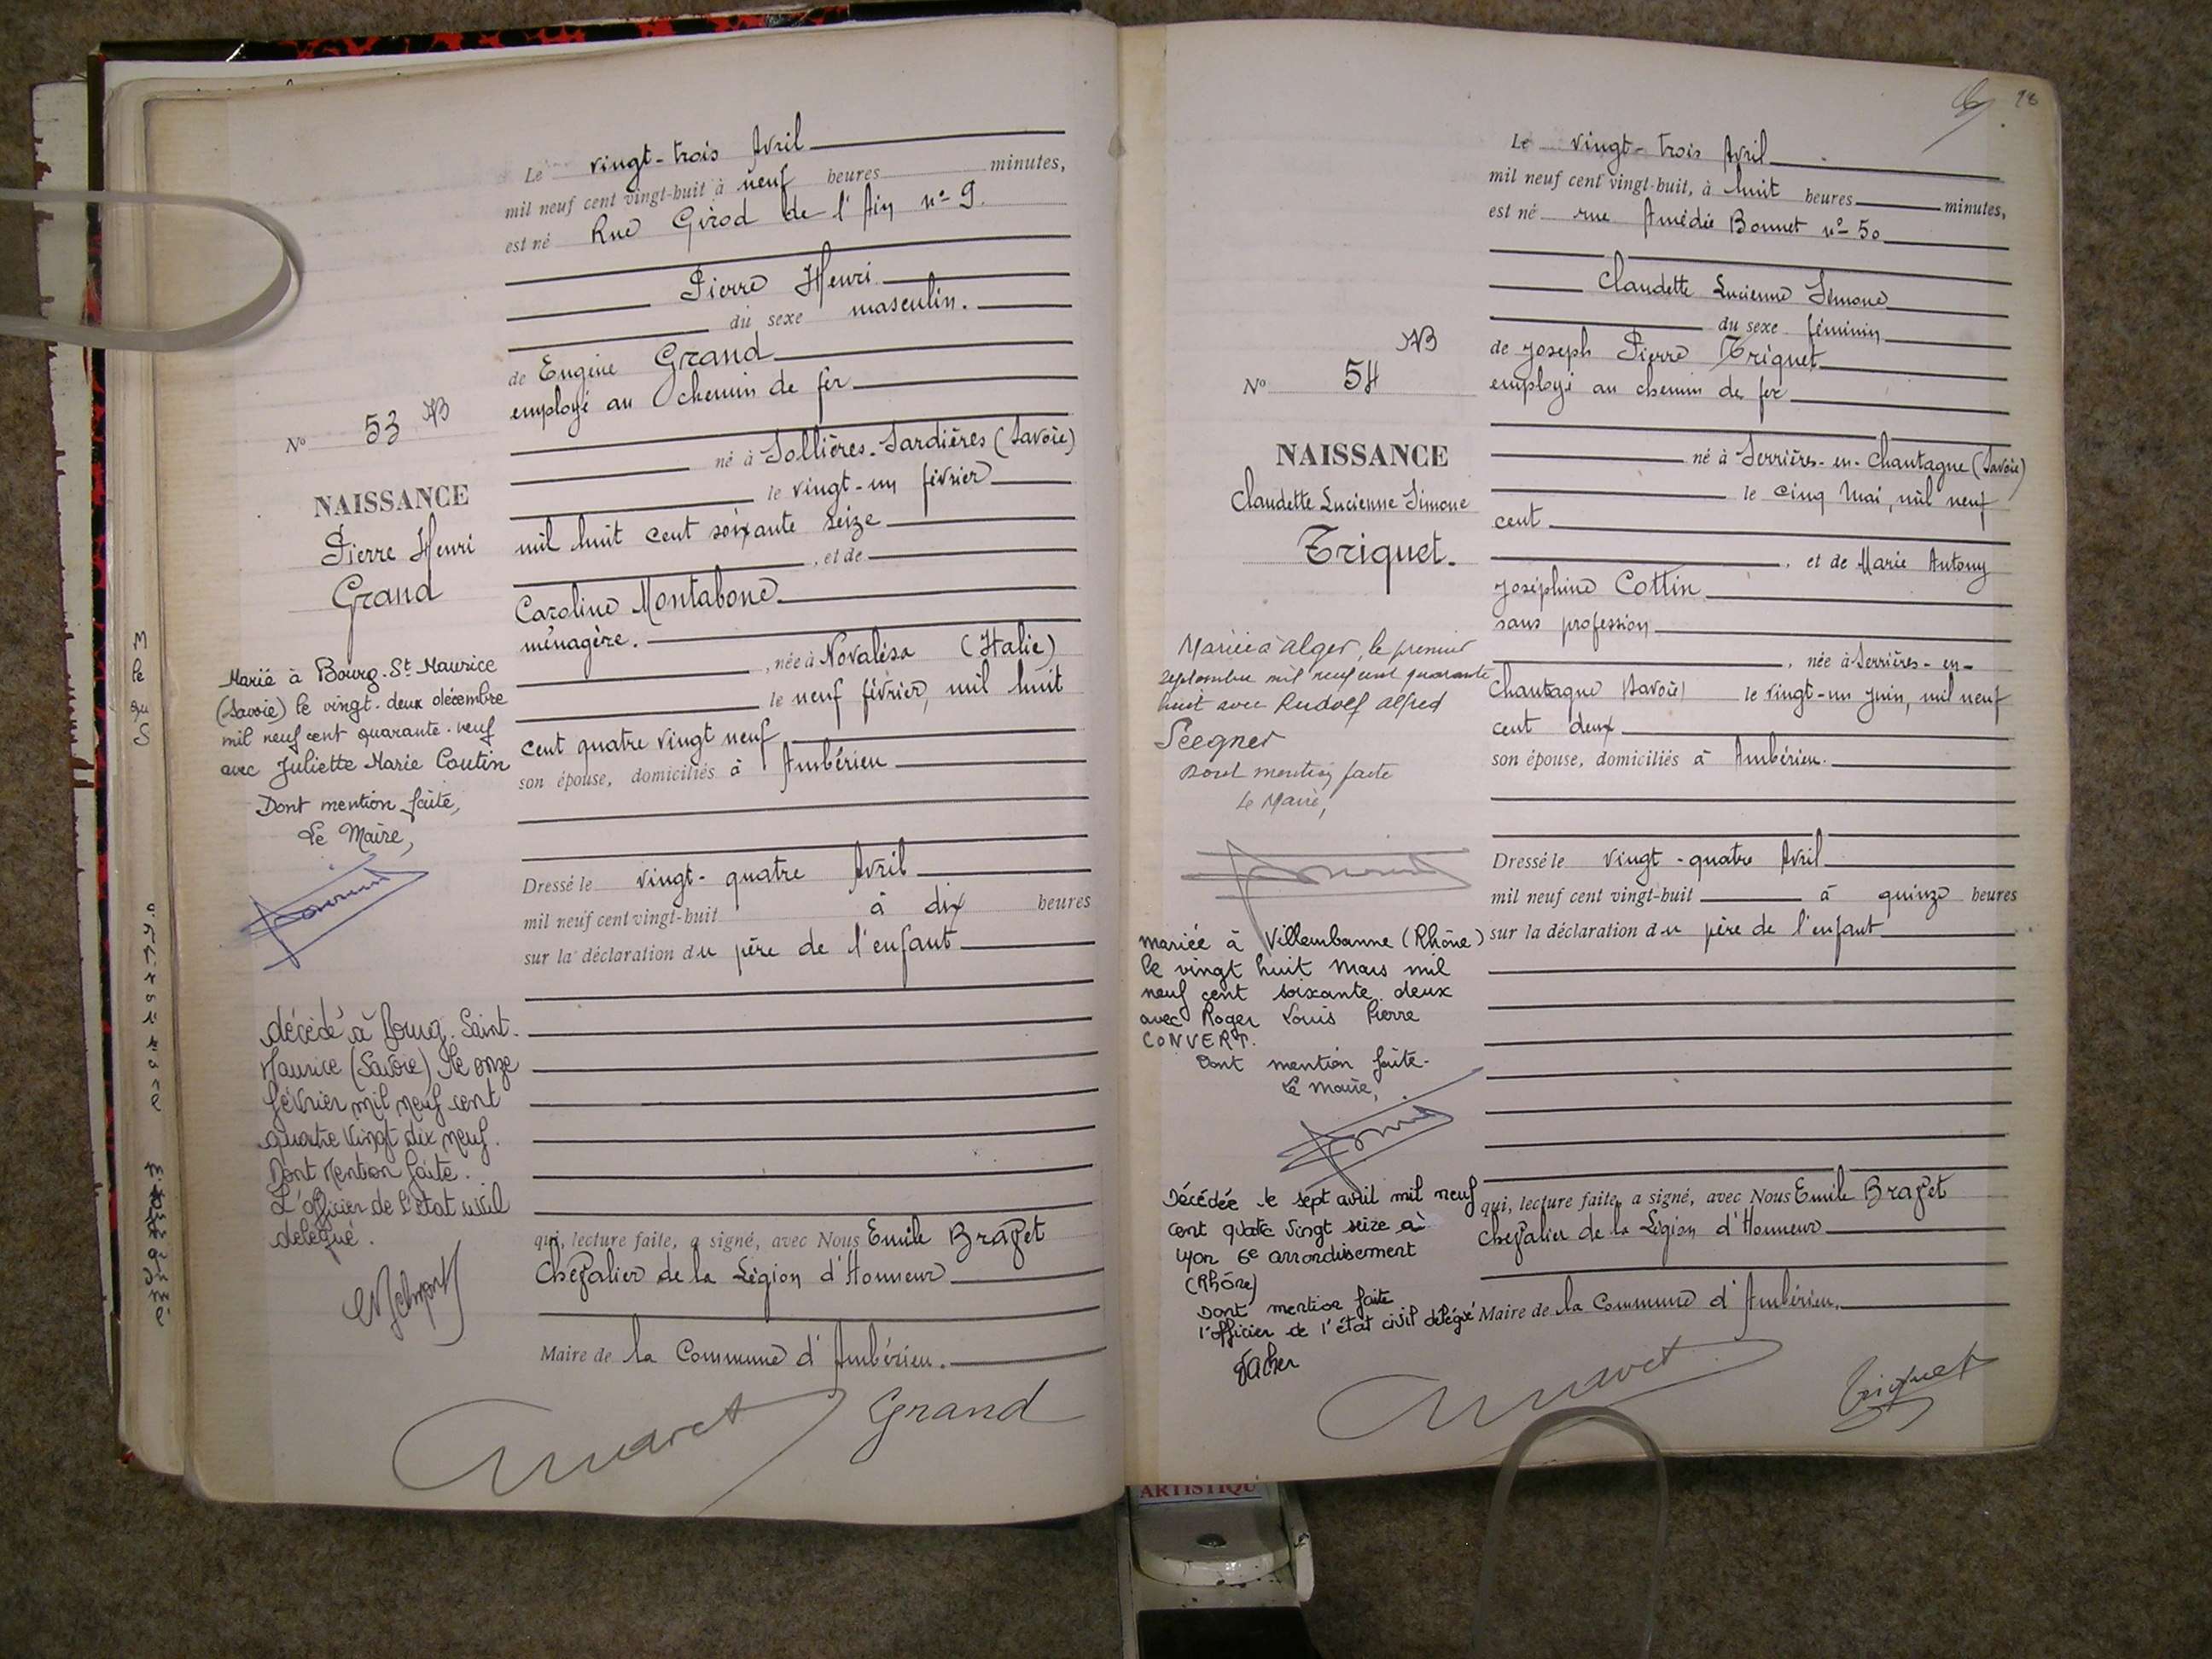 Le vingt-trois Avril
mil neuf cent vingt-huit à neuf heures minutes,
est né Rue Girod de l'Ain n° 9.
Pierre Henri
du sexe masculin.
de Eugène Grand
employé au chemin de fer
né à Sollières-Sardières (Savoie)
le vingt-un février
mil huit cent soixante seize
, et de
Caroline Montabone
ménagère.
, née à Novalésa (Italie)
le neuf février, mil huit
cent quatre vingt neuf
son épouse, domiciliés à Ambérieu
Dressé le vingt-quatre Avril
mil neuf cent vingt-huit à dix heures
sur la déclaration du père de l'enfant
qui, lecture faite, a signé, avec Nous Emile Bravet
Chevalier de la Légion d'Honneur
Maire de la Commune d'Ambérieu.
Grand
N° 53 NB
NAISSANCE
Pierre Henri
Grand
Marié à Bourg-St-Maurice
(Savoie) le vingt-deux décembre
mil neuf cent quarante-neuf
avec Juliette Marie Coutin
Dont mention faite,
Le Maire,
décédé à Bourg-Saint-
Maurice (Savoie) le onze
février mil neuf cent
quatre vingt dix neuf.
Dont Mention faite.
L'officier de l'état civil
délégué.
98
Le vingt-trois Avril
mil neuf cent vingt-huit, à huit heures minutes,
est né rue Amédée Bonnet n° 50
Claudette Lucienne Simone
du sexe féminin
de Joseph Pierre Triquet
employé au chemin de fer
né à Serrières-en-Chautagne (Savoie)
le cinq Mai, mil neuf
cent
, et de Marie Antony
Joséphine Cottin
sans profession
, née à Serrières-en-
Chautagne (Savoie) le vingt-un Juin, mil neuf
cent deux
son épouse, domiciliés à Ambérieu.
Dressé le vingt-quatre Avril
mil neuf cent vingt-huit à quinze heures
sur la déclaration du père de l'enfant
qui, lecture faite, a signé, avec Nous Emile Bravet
Chevalier de la Légion d'Honneur
Maire de la Commune d'Ambérieu.
Triquet
N° 54 NB
NAISSANCE
Claudette Lucienne Simone
Triquet.
Mariée à Alger, le premier
septembre mil neuf cent quarante
huit avec Rudolf Alfred
Seegner
Dont mention faite
Le Maire,
Mariée à Villeurbanne (Rhône)
le vingt huit mars mil
neuf cent soixante deux
avec Roger Louis Pierre
CONVERT.
Dont mention faite.
Le Maire,
Décédée le sept avril mil neuf
cent quatre vingt seize à
Lyon 6e arrondissement
(Rhône)
Dont mention faite
l'officier de l'état civil délégué
Vacher
ARTISTIQU